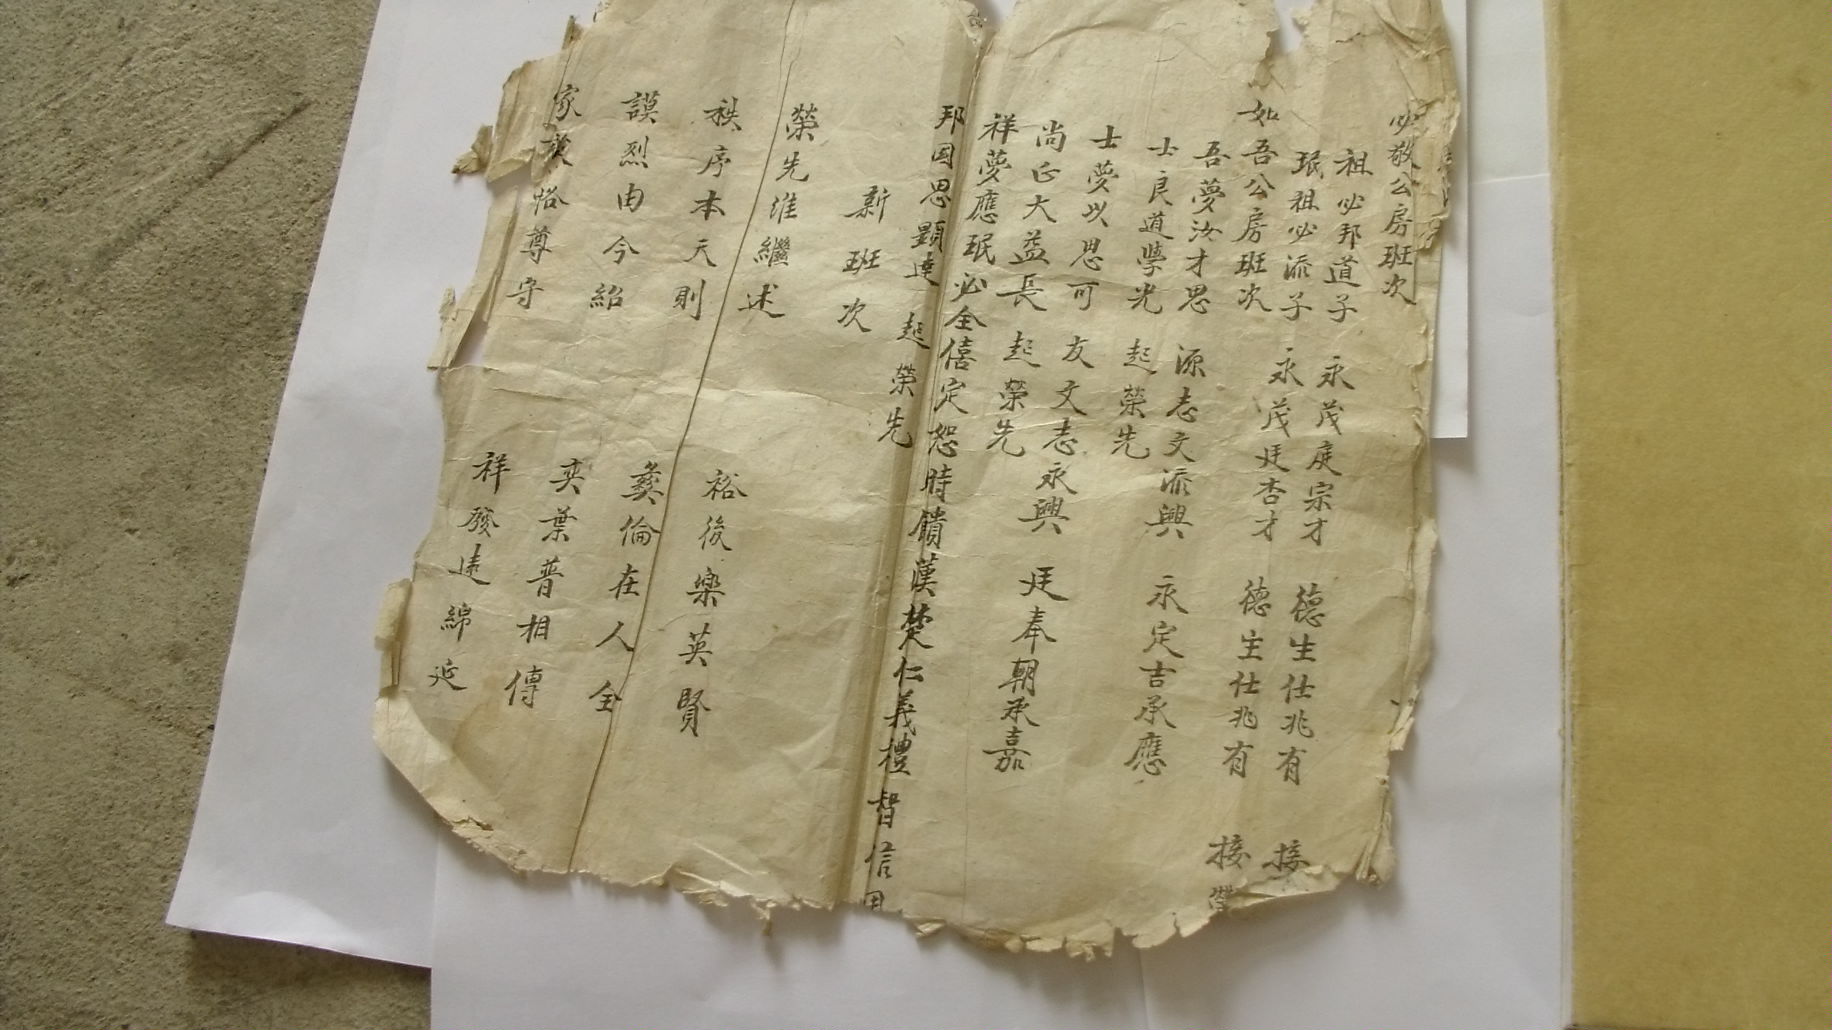 必敬公房班次
祖必邦道子 永茂庭宗才 德生仕兆有 接
珉祖必派子 永茂廷杏才 德生仕兆有 接榮
如吾公房班次
吾夢汝才思 源志文派興 永定吉承應
士良道學光 起榮先
士夢以思可 友文志永興 廷奉朝承嘉
尚正大益長 起榮先
祥夢應珉必全僖定恕時饋漢楚仁義禮智信
邦国思顯達 起榮先
新班次
榮先维繼述 裕後樂英賢
秩序本天則 彝倫在人全
謨烈由今紹 奕葉普相傳
家 恪尊守 祥發遠綿延